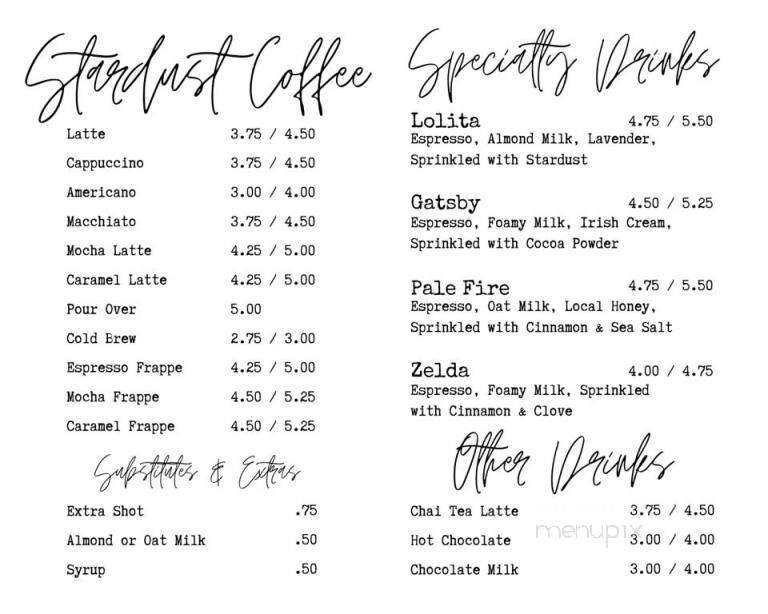 Stardust Coffee
Latte 3.75 / 4.50
Cappuccino 3.75 / 4.50
Americano 3.00 / 4.00
Macchiato 3.75 / 4.50
Mocha Latte 4.25 / 5.00
Caramel Latte 4.25 / 5.00
Pour Over 5.00
Cold Brew 2.75 / 3.00
Espresso Frappe 4.25 / 5.00
Mocha Frappe 4.50 / 5.25
Caramel Frappe 4.50 / 5.25
Substitutes & Extras
Extra Shot .75
Almond or Oat Milk .50
Syrup .50
Specialty Drinks
Lolita 4.75 / 5.50
Espresso, Almond Milk, Lavender,
Sprinkled with Stardust
Gatsby 4.50 / 5.25
Espresso, Foamy Milk, Irish Cream,
Sprinkled with Cocoa Powder
Pale Fire 4.75 / 5.50
Espresso, Oat Milk, Local Honey,
Sprinkled with Cinnamon & Sea Salt
Zelda 4.00 / 4.75
Espresso, Foamy Milk, Sprinkled
with Cinnamon & Clove
Other Drinks
Chai Tea Latte 3.75 / 4.50
menupix
Hot Chocolate 3.00 / 4.00
Chocolate Milk 3.00 / 4.00